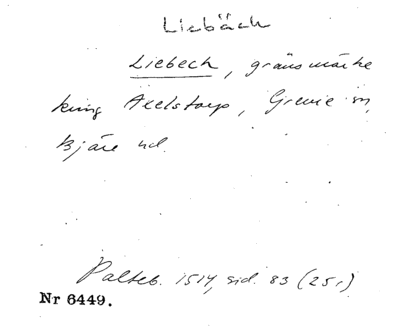 Liebäck
Liebech, gränsmärke
kring Axelstorp, Grevie sn,
Bjäre hd.
Palteb. 1514, sid. 83 (25r)
Nr 6449.